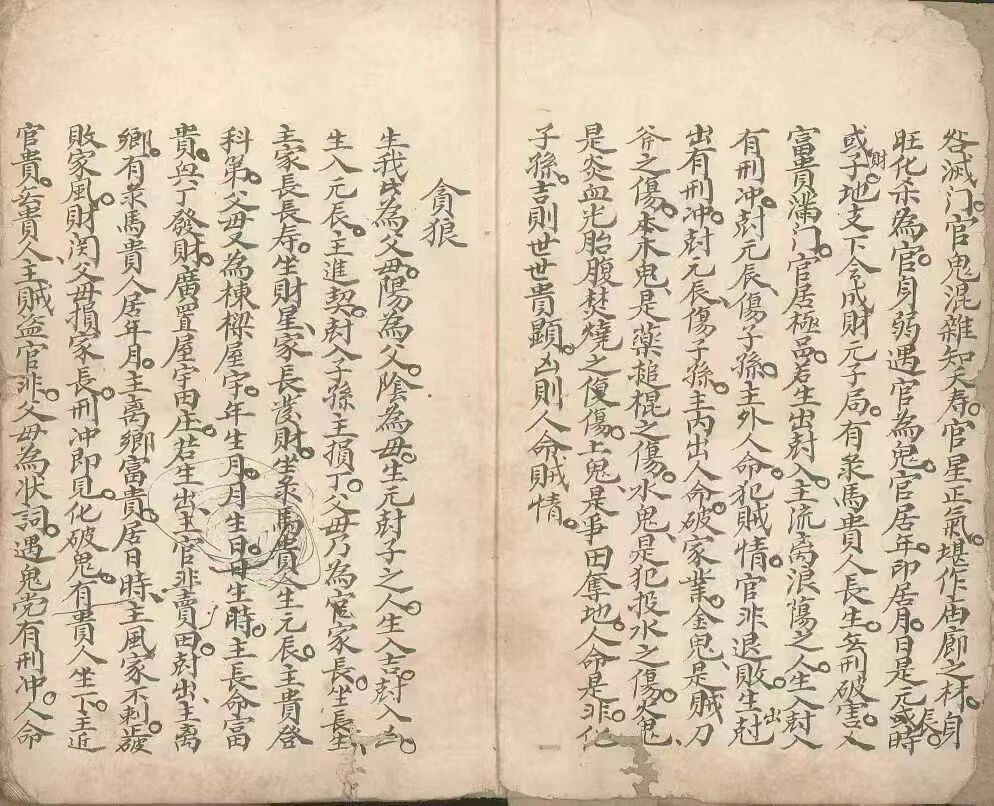 咎滅门。官鬼混雜知夭寿。官星正氣。堪作庙廊之材。身
旺化杀為官。身弱遇官為鬼。官居年。印居月。日是元辰。或時
或子財地支下合成財元子局。有彔馬貴人長生。無刑破害。人
富貴滿门。官居極品。若生出尅入。主流离浪蕩之人。生入尅入
有刑冲。尅元辰。傷子孫。主外人命。犯賊情。官非退敗。生出尅
出有刑冲。尅元辰。傷子孫。主内出人命。破家業。金鬼是賊刀
斧之傷。木鬼是藥搥棍之傷。水鬼是犯投水之傷。火鬼
是炎血光胎腹焚燒之傷。土鬼是爭田奪地。人命是非。化
子孫。吉則世世貴顯。凶則人命賊情。
貪狼
生我。為父母。陽為父。陰為母。生元尅子之人。生入吉。尅入凶
生入元辰。主進契。尅入子孫主損丁。父母乃為官家長。坐長生
主家長長寿。坐財星。家長發財。坐彔馬貴人生元辰。主貴登
科第。父母又為棟樑屋宇。年生月。月生日。日生時。主長命富
貴。興丁發財。廣置屋宇田庄。若生出。主官非賣田。尅出。主离
鄉。有彔馬貴人居年月。主离鄉富貴。居日時。主風家不利。破
敗家風。財関父母損家長。刑冲即見。化破鬼。有貴人坐下。主近
官貴。無貴人。主賊盗官非。父母為状詞。遇鬼党有刑冲。人命